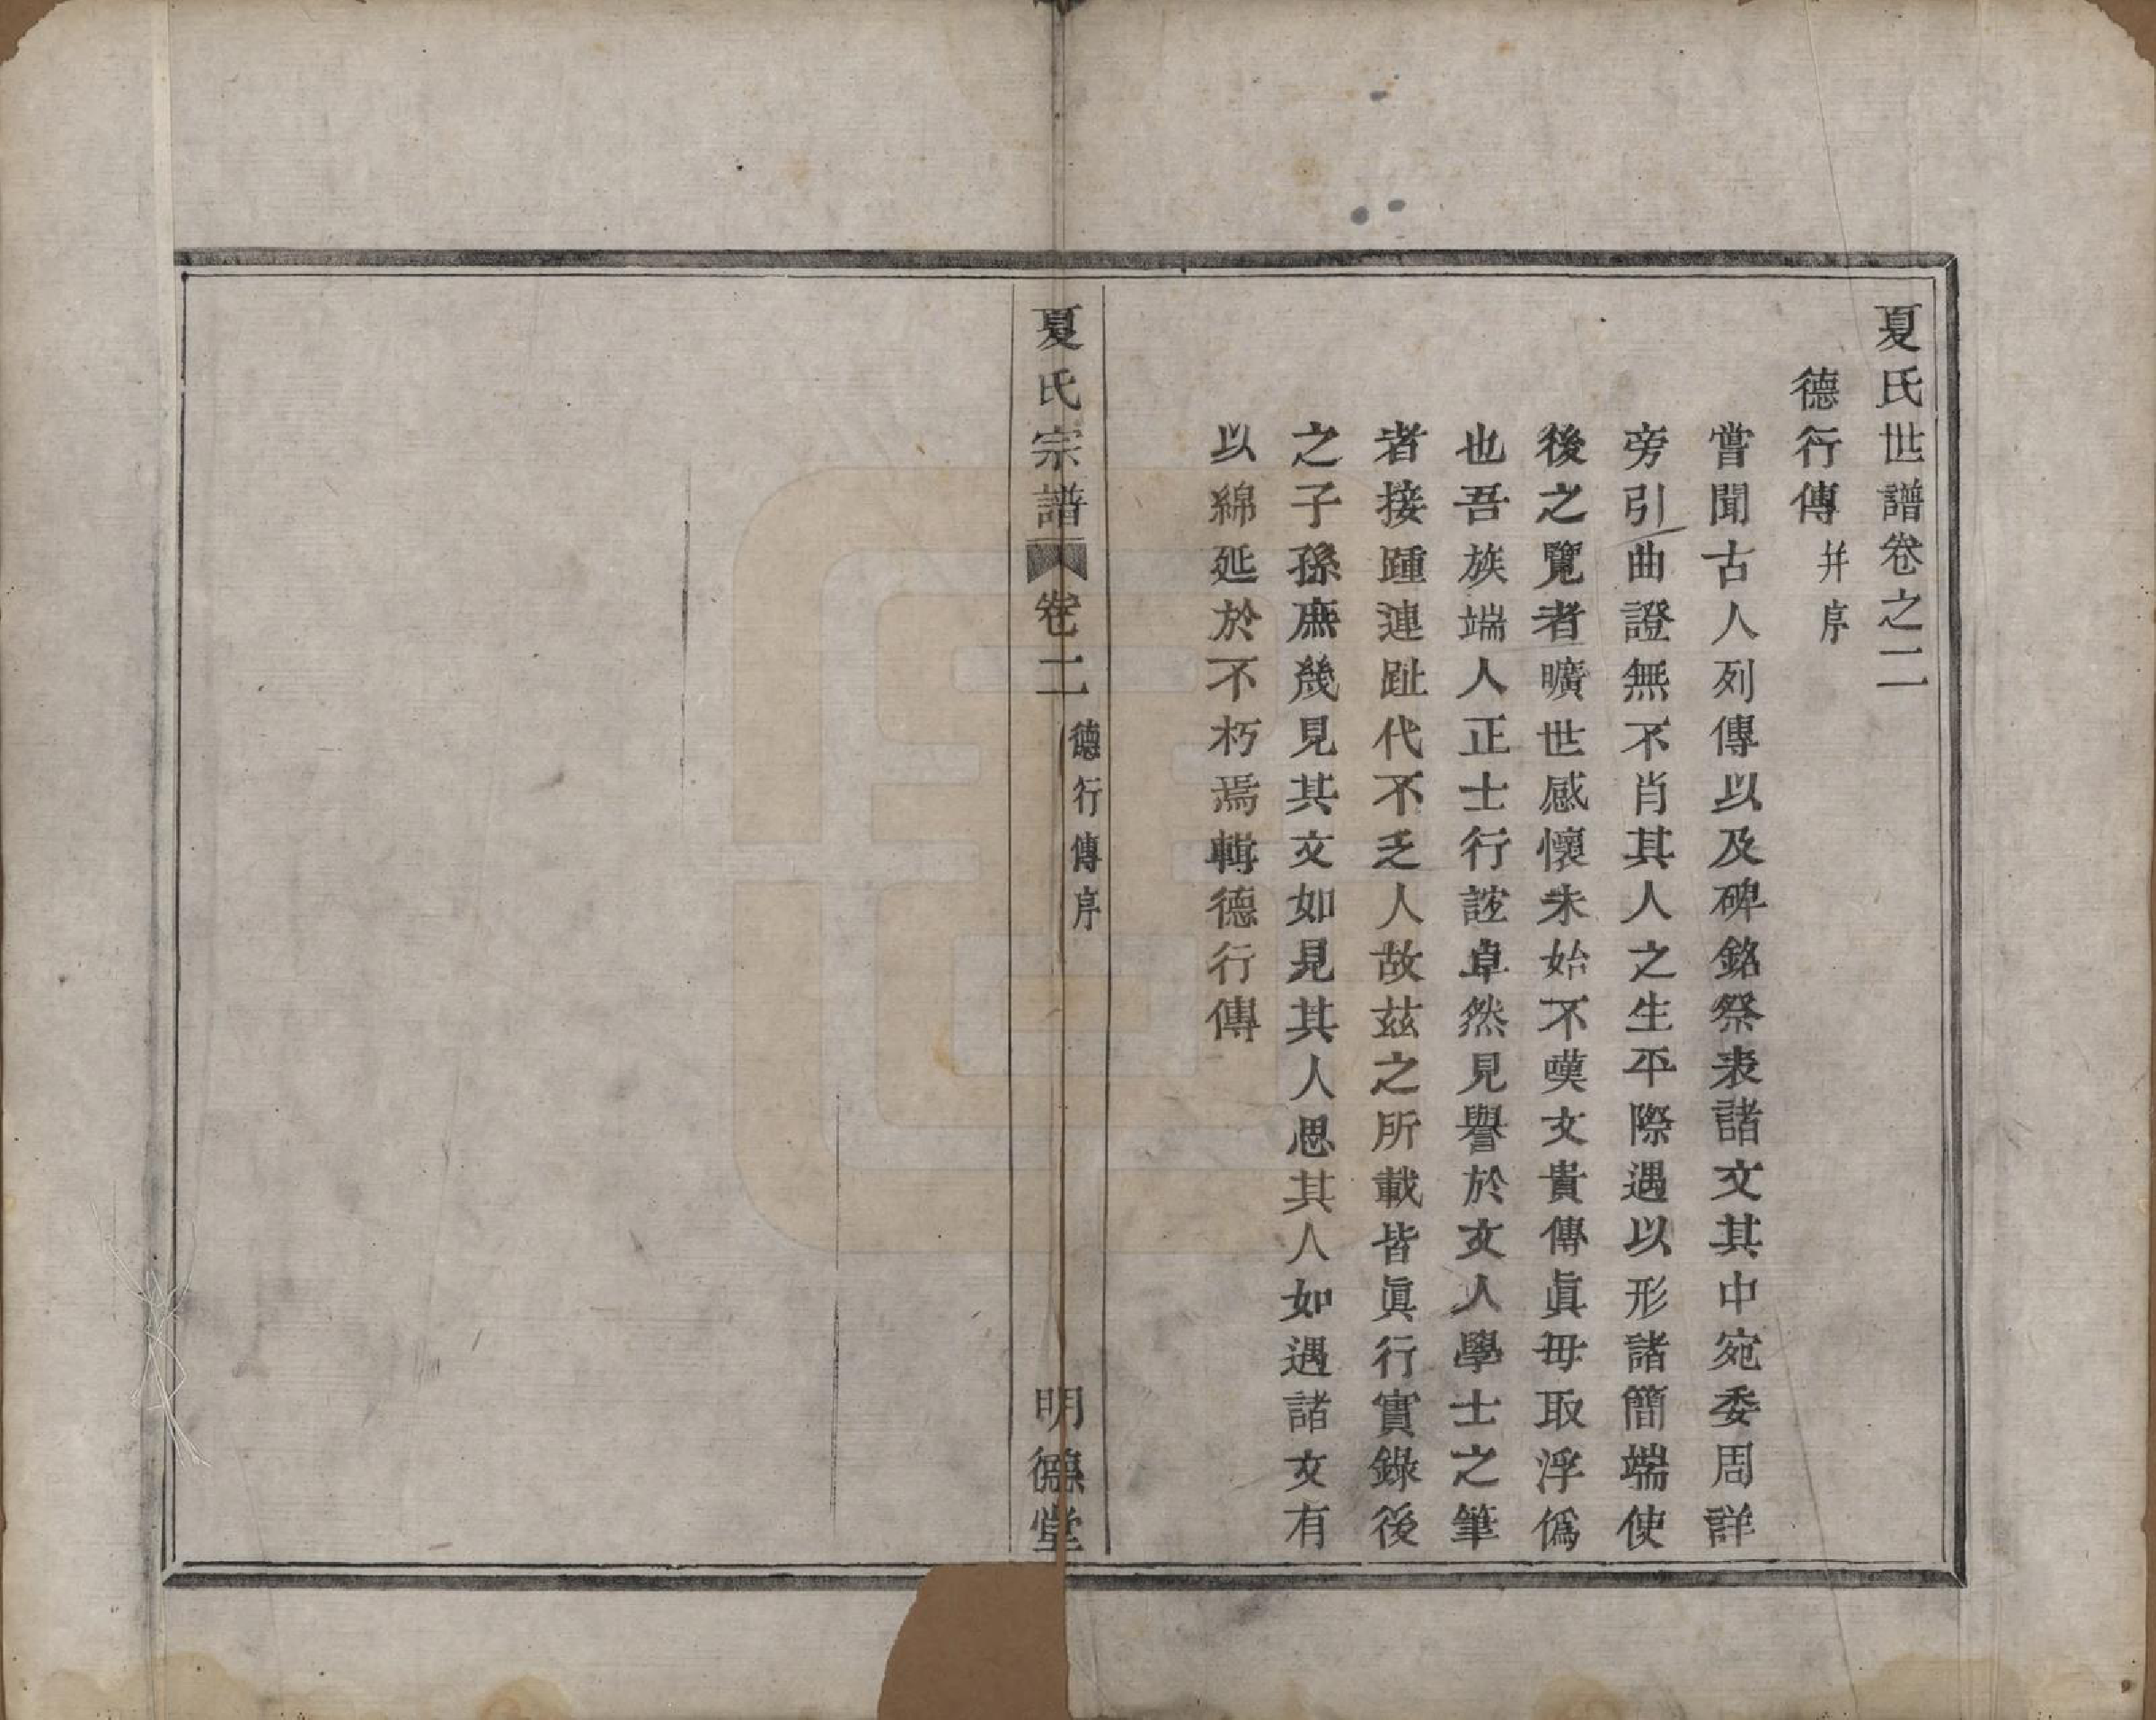 夏氏世譜卷之二
德行傳 并序
嘗聞古人列傳以及碑銘祭表諸文其中宛委周詳
旁引曲證無不肖其人之生平際遇以形諸簡端使
後之覽者曠世感懷未始不嘆文貴傳眞毋取浮僞
也吾族端人正士行誼卓然見譽於文人學士之筆
者接踵連趾代不乏人故茲之所載皆眞行實錄後
之子孫庶幾見其文如見其人思其人如遇諸文有
以綿延於不朽焉輯德行傳
夏氏宗譜 卷二 德行傳序 明德堂